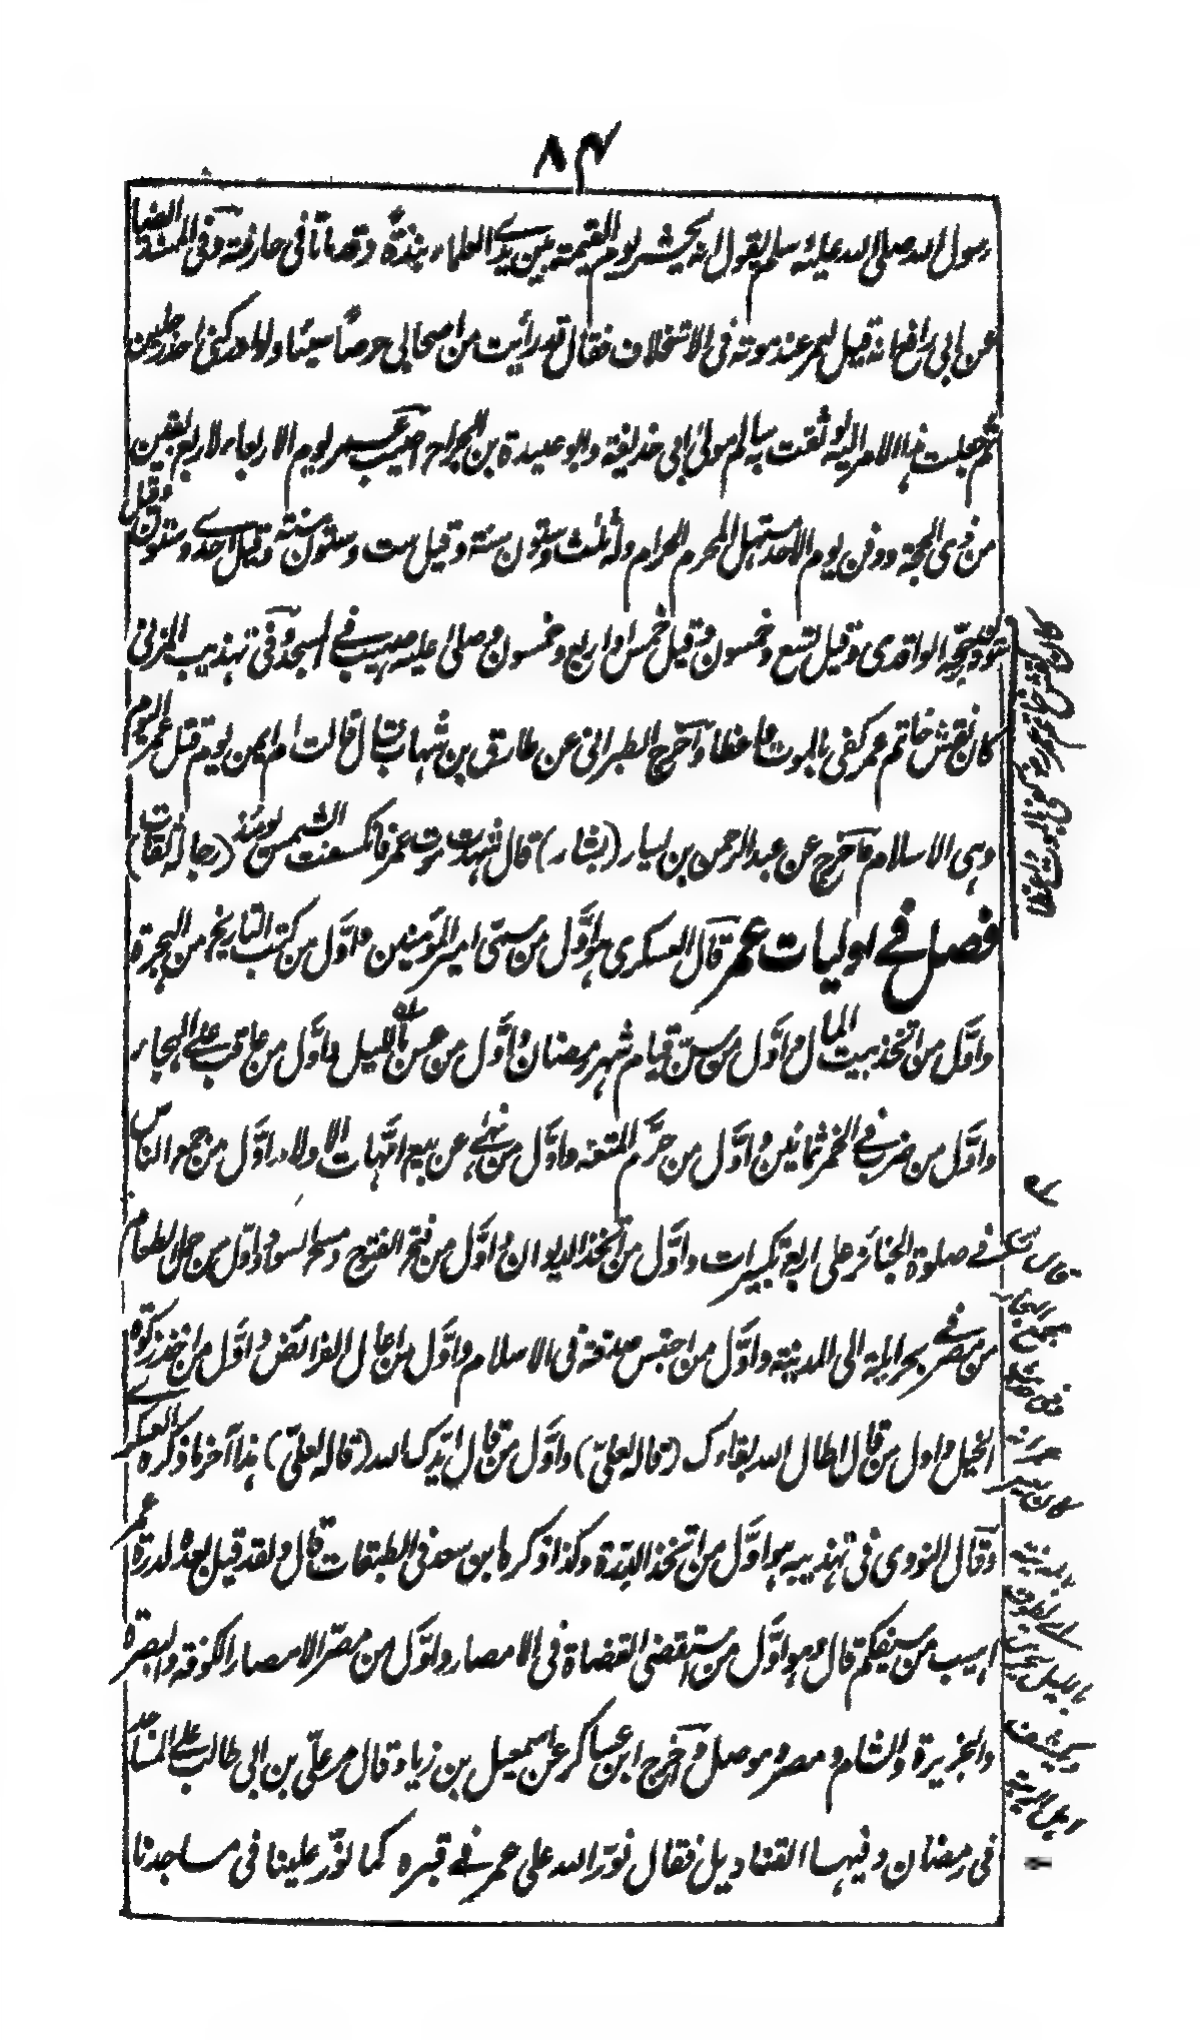 ٨٤
رسول الله صلى الله عليه وسلم يقول انه يحشر يوم القيمة بين يدي العلماء نبذة وقد مات في خلافته وفي المستدرك
عن ابي رافع انه قيل لعمر عند موته في الاستخلاف فقال قد رأيت من اصحابي حرصا سيئا ولو ادركني احد رجلين
ثم جعلت هذا الامر اليه لوثقت به سالم مولى ابي حذيفة وابو عبيدة بن الجراح اصيب عمر يوم الاربعاء لاربع بقين
من ذي الحجة ودفن يوم الاحد مستهل المحرم الحرام وله ثلث وستون سنة وقيل ست وستون سنة وقيل احدى وستون وقيل
ستون ورجحه الواقدي وقيل تسع وخمسون وقيل خمس او اربع وخمسون وصلى عليه صهيب في المسجد وفي تهذيب المزني
كان نقش خاتم عمر كفى بالموت واعظا وآخرج الطبراني عن طارق بن شهاب قال قالت ام ايمن يوم قتل عمر اليوم
وهى الاسلام وآخرج عن عبد الرحمن بن يسار (بشار) قال شهدت موت عمر فانكسفت الشمس يومئذ (رجاله ثقات)
فصل في اوليات عمر قال العسكري هو اول من سمى امير المؤمنين واول من كتب التاريخ من الهجرة
واول من اتخذ بيت المال واول من سن قيام شهر رمضان واول من عس بالليل واول من عاقب على الهجاء
واول من ضرب في الخمر ثمانين واول من حرم المتعة واول من نهى عن بيع امهات الاولاد واول من جمع الناس
في صلوة الجنائز على اربع تكبيرات واول من اتخذ الديوان واول من فتح الفتوح ومسح السواد واول من حمل الطعام
من مصر في بحر ايلة الى المدينة واول من احتبس صدقة في الاسلام واول من اعال الفرائض واول من اخذ زكوة
الخيل واول من قال اطال الله بقاءك (قاله لعلي) واول من قال ايدك الله (قاله لعلي) هذا آخر ما ذكره العسكري
وقال النووي في تهذيبه هو اول من اتخذ الدرة وكذا ذكره ابن سعد في الطبقات قال ولقد قيل بعده لدرة عمر
اهيب من سيفكم قال وهو اول من استقضى القضاة في الامصار واول من مصر الامصار الكوفة والبصرة
والجزيرة والشام ومصر وموصل وآخرج ابن عساكر عن اسمعيل بن زياد قال مر علي بن ابي طالب على المساجد
في رمضان وفيها القناديل فقال نور الله على عمر في قبره كما نور علينا في مساجدنا